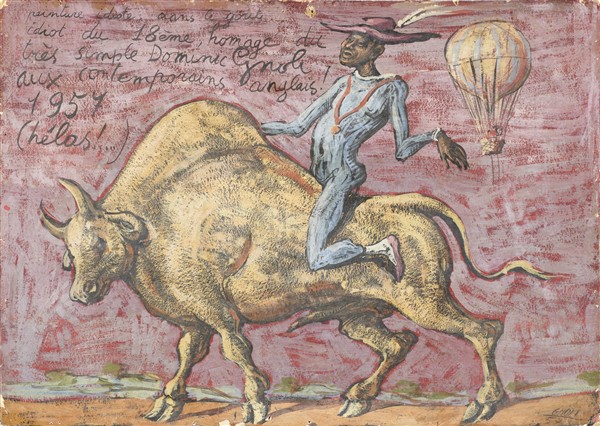 peinture idiote, dans le goût
idiot du 18ème homage du
très simple Dominic Gnoli
aux contemporains anglais!
1957
(hélas!...)